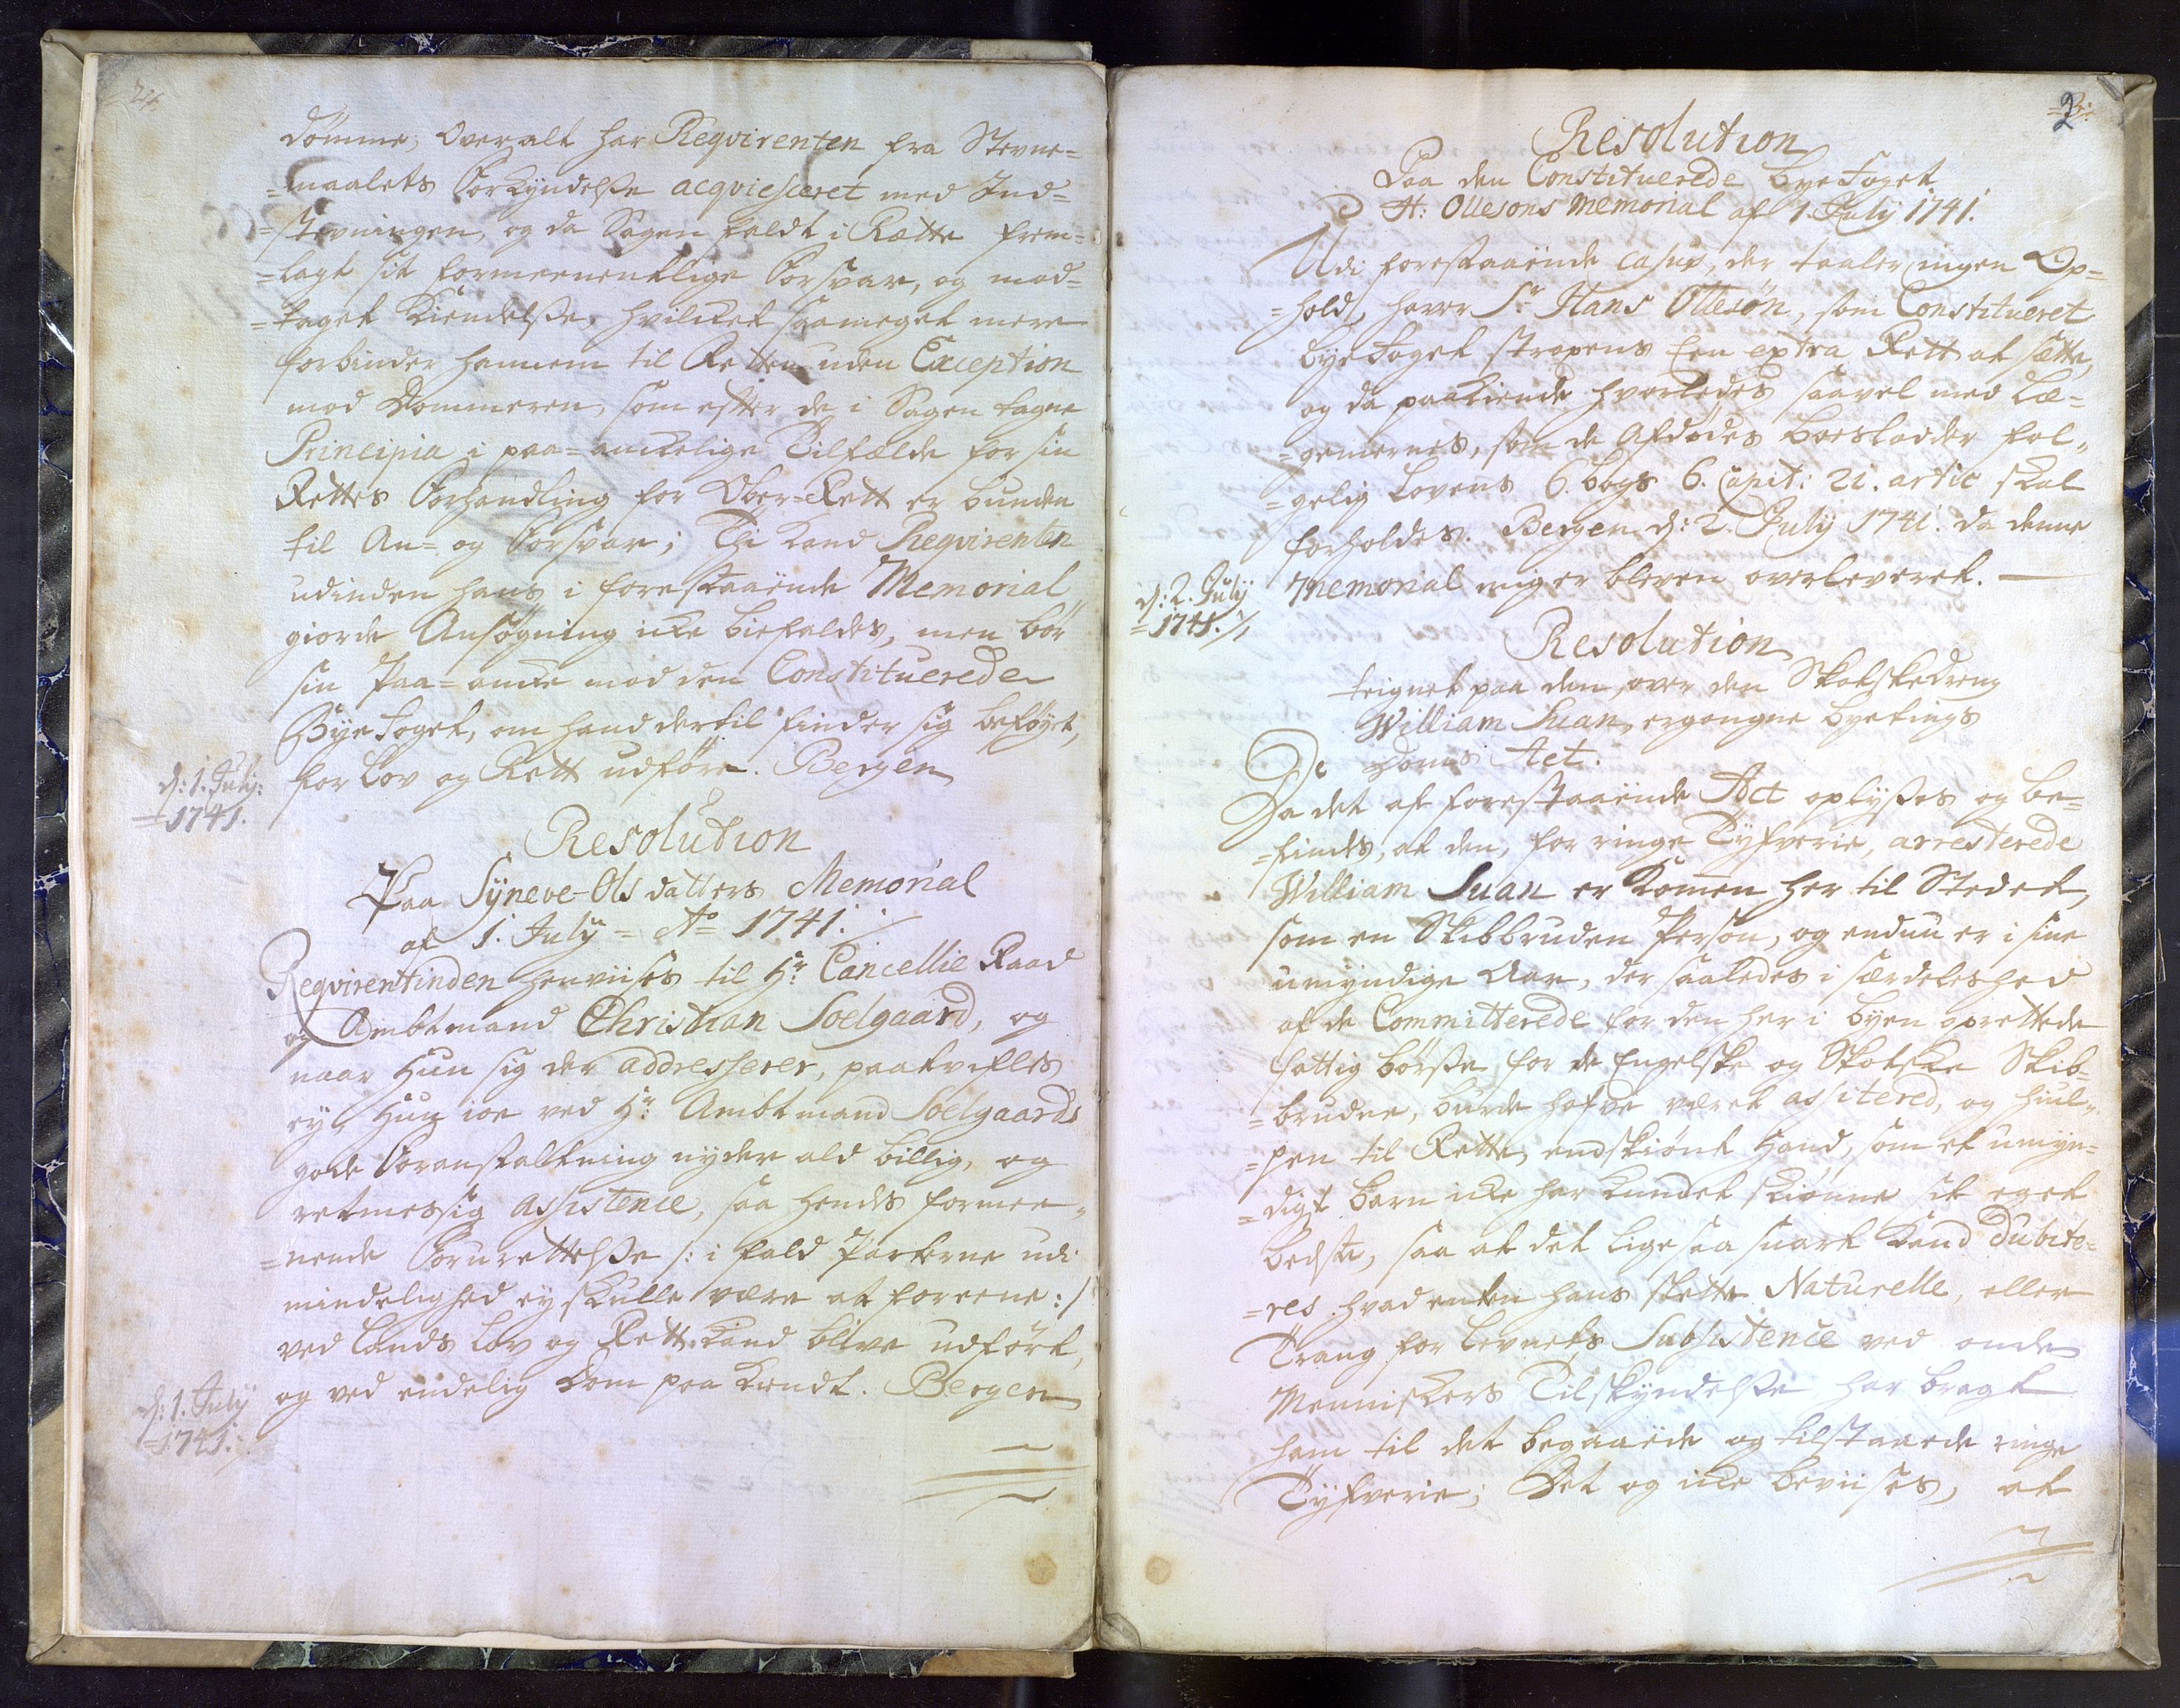 dömme; Overalt har Reqvirenten fra Stevne=
=maalets Forkyndelße acqviesceret med Ind=
=stevningen, og da Sagen faldt i Rætte frem=
=lagt sit formeenentlige Forsvar, og mod=
=taget Kiendelße, hvilket saameget mere
forbinder hannem til Retten uden Exception
mod Dommeren, som efter de i Sagen tagne
Principia i paa=ankelige Tilfælde for sin
Rettes Forhandling for Ober=Rett er bunden
til An= og Forsvar; Thi kand Reqvirenten
udinden hans i forestaaënde Memorial
giorde Ansøgning icke biefaldes, men bör
sin Paa=anke mod den Constituerede
Byefoget, om hand dertil finder sig beföyet,
for Lov og Rett udföre. Bergen
d: 1. July:
=1741.
Resolution
Paa Syneve Olsdatters Memorial
af 1. July = Ao 1741. /
Reqvirentinden henviises til Hr. Cancellie Raad
og Ambtmand Christian Soelgaard, og
naar Hun sig der addresserer, paatvifles
ey, Hun ioe ved Hr. Ambtmand Soelgaards
gode Foranstaltning nyder ald billig, og
retmessig assistence, saa hendes formee=
=nende Forurettelße /: i fald Parterne udi
mindelighed ey skulle være at foreene :/
ved Lands Lov og Rett kand blive udfört,
og ved endelig Dom paa kiendt. Bergen
d: 1. July
=1741. /.
2
Resolution
Paa den Constituerede Byefoget
H: Ollesons Memorial af 1. July 1741.
Udi forestaaënde casus, der taaler ingen Op=
=hold, haver Sr. Hans Ollesön, som Constitueret
Byefoget strapens Een extra Rett at sætte,
og da paakiende hvorledes saavel med Læ=
=gemernes, som de Afdödes Boeslodder föl=
=gelig Lovens 6. bogs 6. Capit: 21. artic skal
forholdes. Bergen d: 2. July 1741. da denne
Memorial mig er bleven overleveret. —
d: 2. July
=1741. /.
Resolution
teignet paa den, over den Skotskedreng
William Suan, ergangne Byetings
Doms Act.
Da det af forestaaënde Act oplyßes og be=
=findes, at den, for ringe Tyfverie, arresterede
William Suan er kommen her til Stedet,
som en Skibbruden Person, og endnu er i sine
umyndige Aar, der saaledes i særdeleshed
af de Committerede for den her i Byen oprettede
fattig börße for de Engelske og Skotske Skib=
=brudne, burde hafve været assitered, og hiul=
=pen til Rette, endskiönt Hand, som et umyn=
=digt Barn icke har kundet skiönne sit eget
Bedste, saa at det lige saa snart kand dubite=
=res hvad enten hans slette Naturelle, eller
Trang for Levnets Subsistence ved onde
Menniskers Tilskyndelße har bragt
ham til det begaaede og tilstaaede ringe
Tyfverie; Det og icke beviises, at